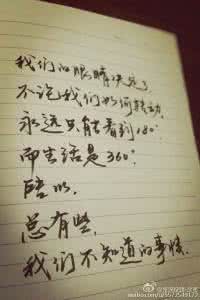 我们的眼睛决定了
不论我们如何转动
永远只能看到180°
而生活是360°
所以,
总有些,
我们不知道的事情.